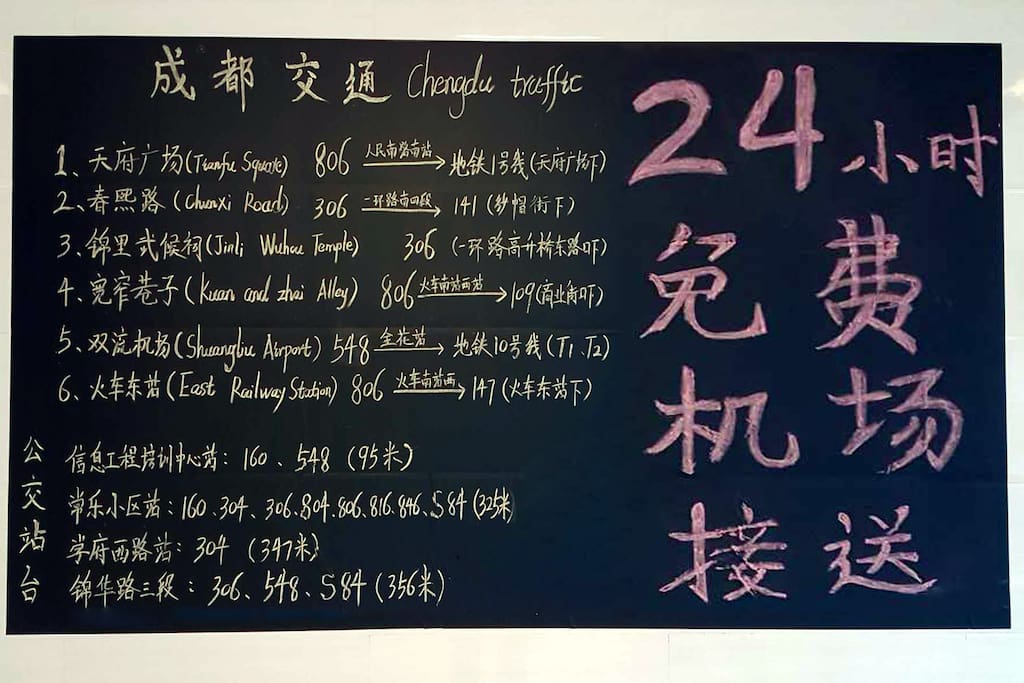 成都交通 Chengdu traffic
1、天府广场(Tianfu Square) 806 人民南路南站→ 地铁1号线(天府广场下)
2、春熙路(Chunxi Road) 306 二环路南四段→ 141(纱帽街下)
3、锦里武候祠(Jinli Wuhou Temple) 306(一环路高升桥东路口下)
4、宽窄巷子(Kuan and zhai Alley) 806 火车南站西站→ 109(商业街口下)
5、双流机场(Shuangliu Airport) 548 金花站→ 地铁10号线(T1、T2)
6、火车东站(East Railway Station) 806 火车南站西→ 147(火车东站下)
公交站台
信息工程培训中心站：160、548(95米)
常乐小区站：160、304、306、804、806、816、846、S84(325米)
学府西路站：304(347米)
锦华路三段：306、548、S84(356米)
24小时
免费
机场
接送